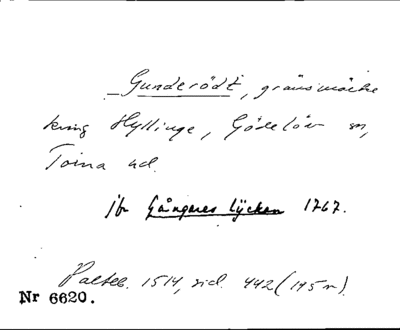 Gunderödt, gränsmärke
kring Hyllinge, Gödelöv sn,
Torna hd.
jfr Gångares lycken 1767.
Palteb. 1514, sid. 442 (195 r).
Nr 6620.